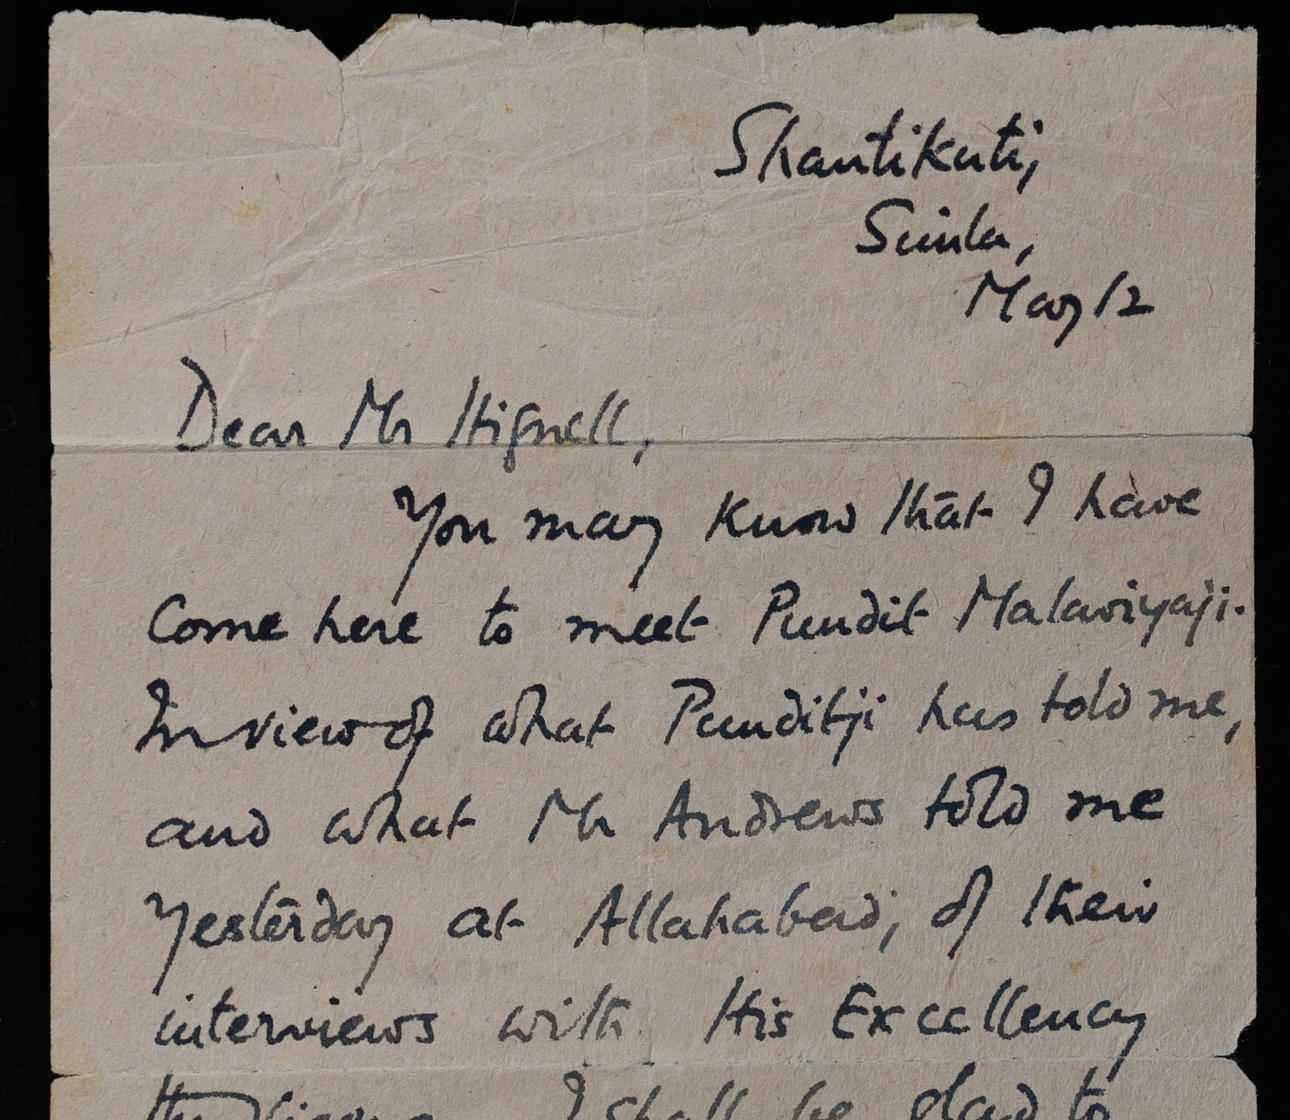 Shantikuti,
Simla,
May 12
Dear Mr Hignell,
You may know that I have
come here to meet Pundit Malaviyaji.
In view of what Punditji has told me,
and what Mr Andrews told me
yesterday at Allahabad, of their
interviews with His Excellency
the Viceroy I shall be glad to